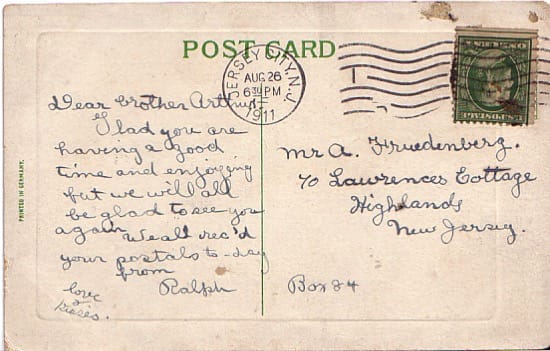 POST CARD
JERSEY CITY, N.J.
AUG 26
6 30 PM
1911
Dear brother Arthur
Glad you are
having a good
time and enjoying
but we will all
be glad to see you
again We all rec'd
your postals to-day
from
Ralph
love
&
kisses.
Mr A. Fruedenberg.
70 Lawrences Cottage
Highlands
New Jersey.
Box 84
PRINTED IN GERMANY.
U.S. POSTAGE